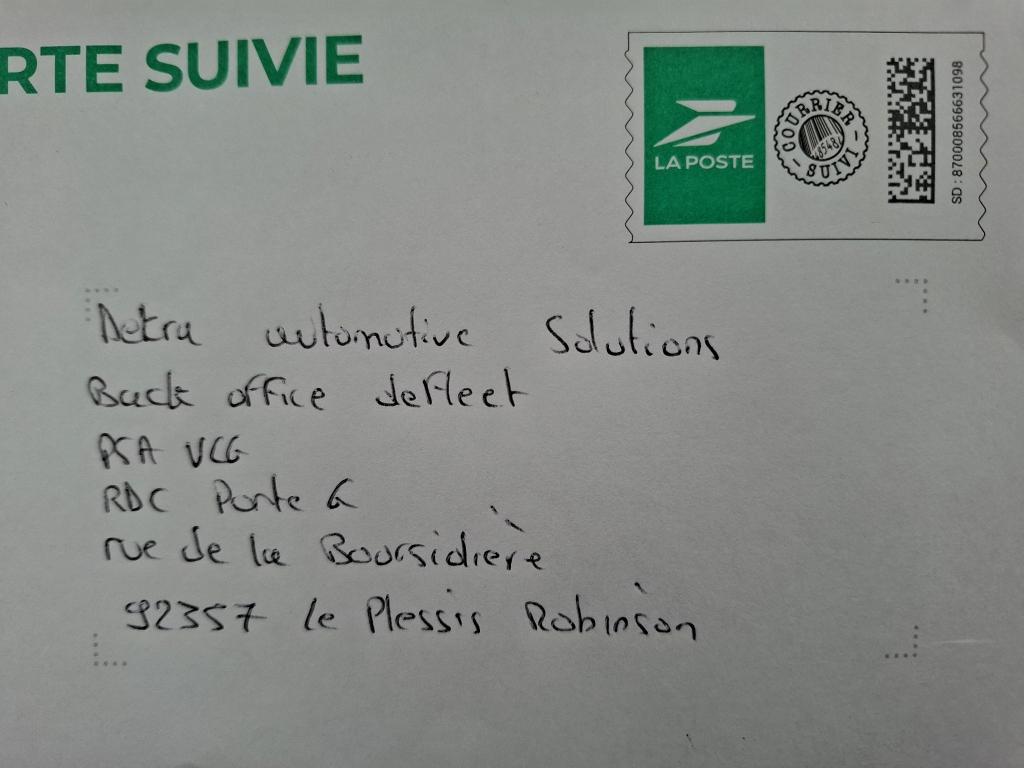 RTE SUIVIE
LA POSTE
COURRIER
SUIVI
SD : 87000856666631098
Detra automotive Solutions
Back office deFleet
PSA VCG
RDC Porte G
rue de la Boursidière
92357 le Plessis Robinson